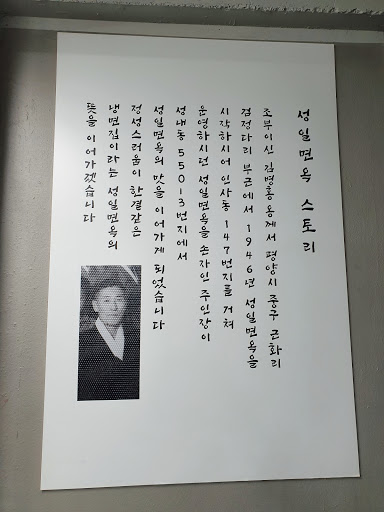 성일면옥 스토리
조부이신 김병홍옹께서 평양시 중구 근화리
검정다리 부근에서 1946년 성일면옥을
시작하시어 인사동 147번지를 거쳐
운영하시던 성일면옥을 손자인 주인장이
성내동 550-3번지에서
성일면옥의 맛을 이어가게 되었습니다
정성스러움이 한결같은
냉면집이라는 성일면옥의
뜻을 이어가겠습니다